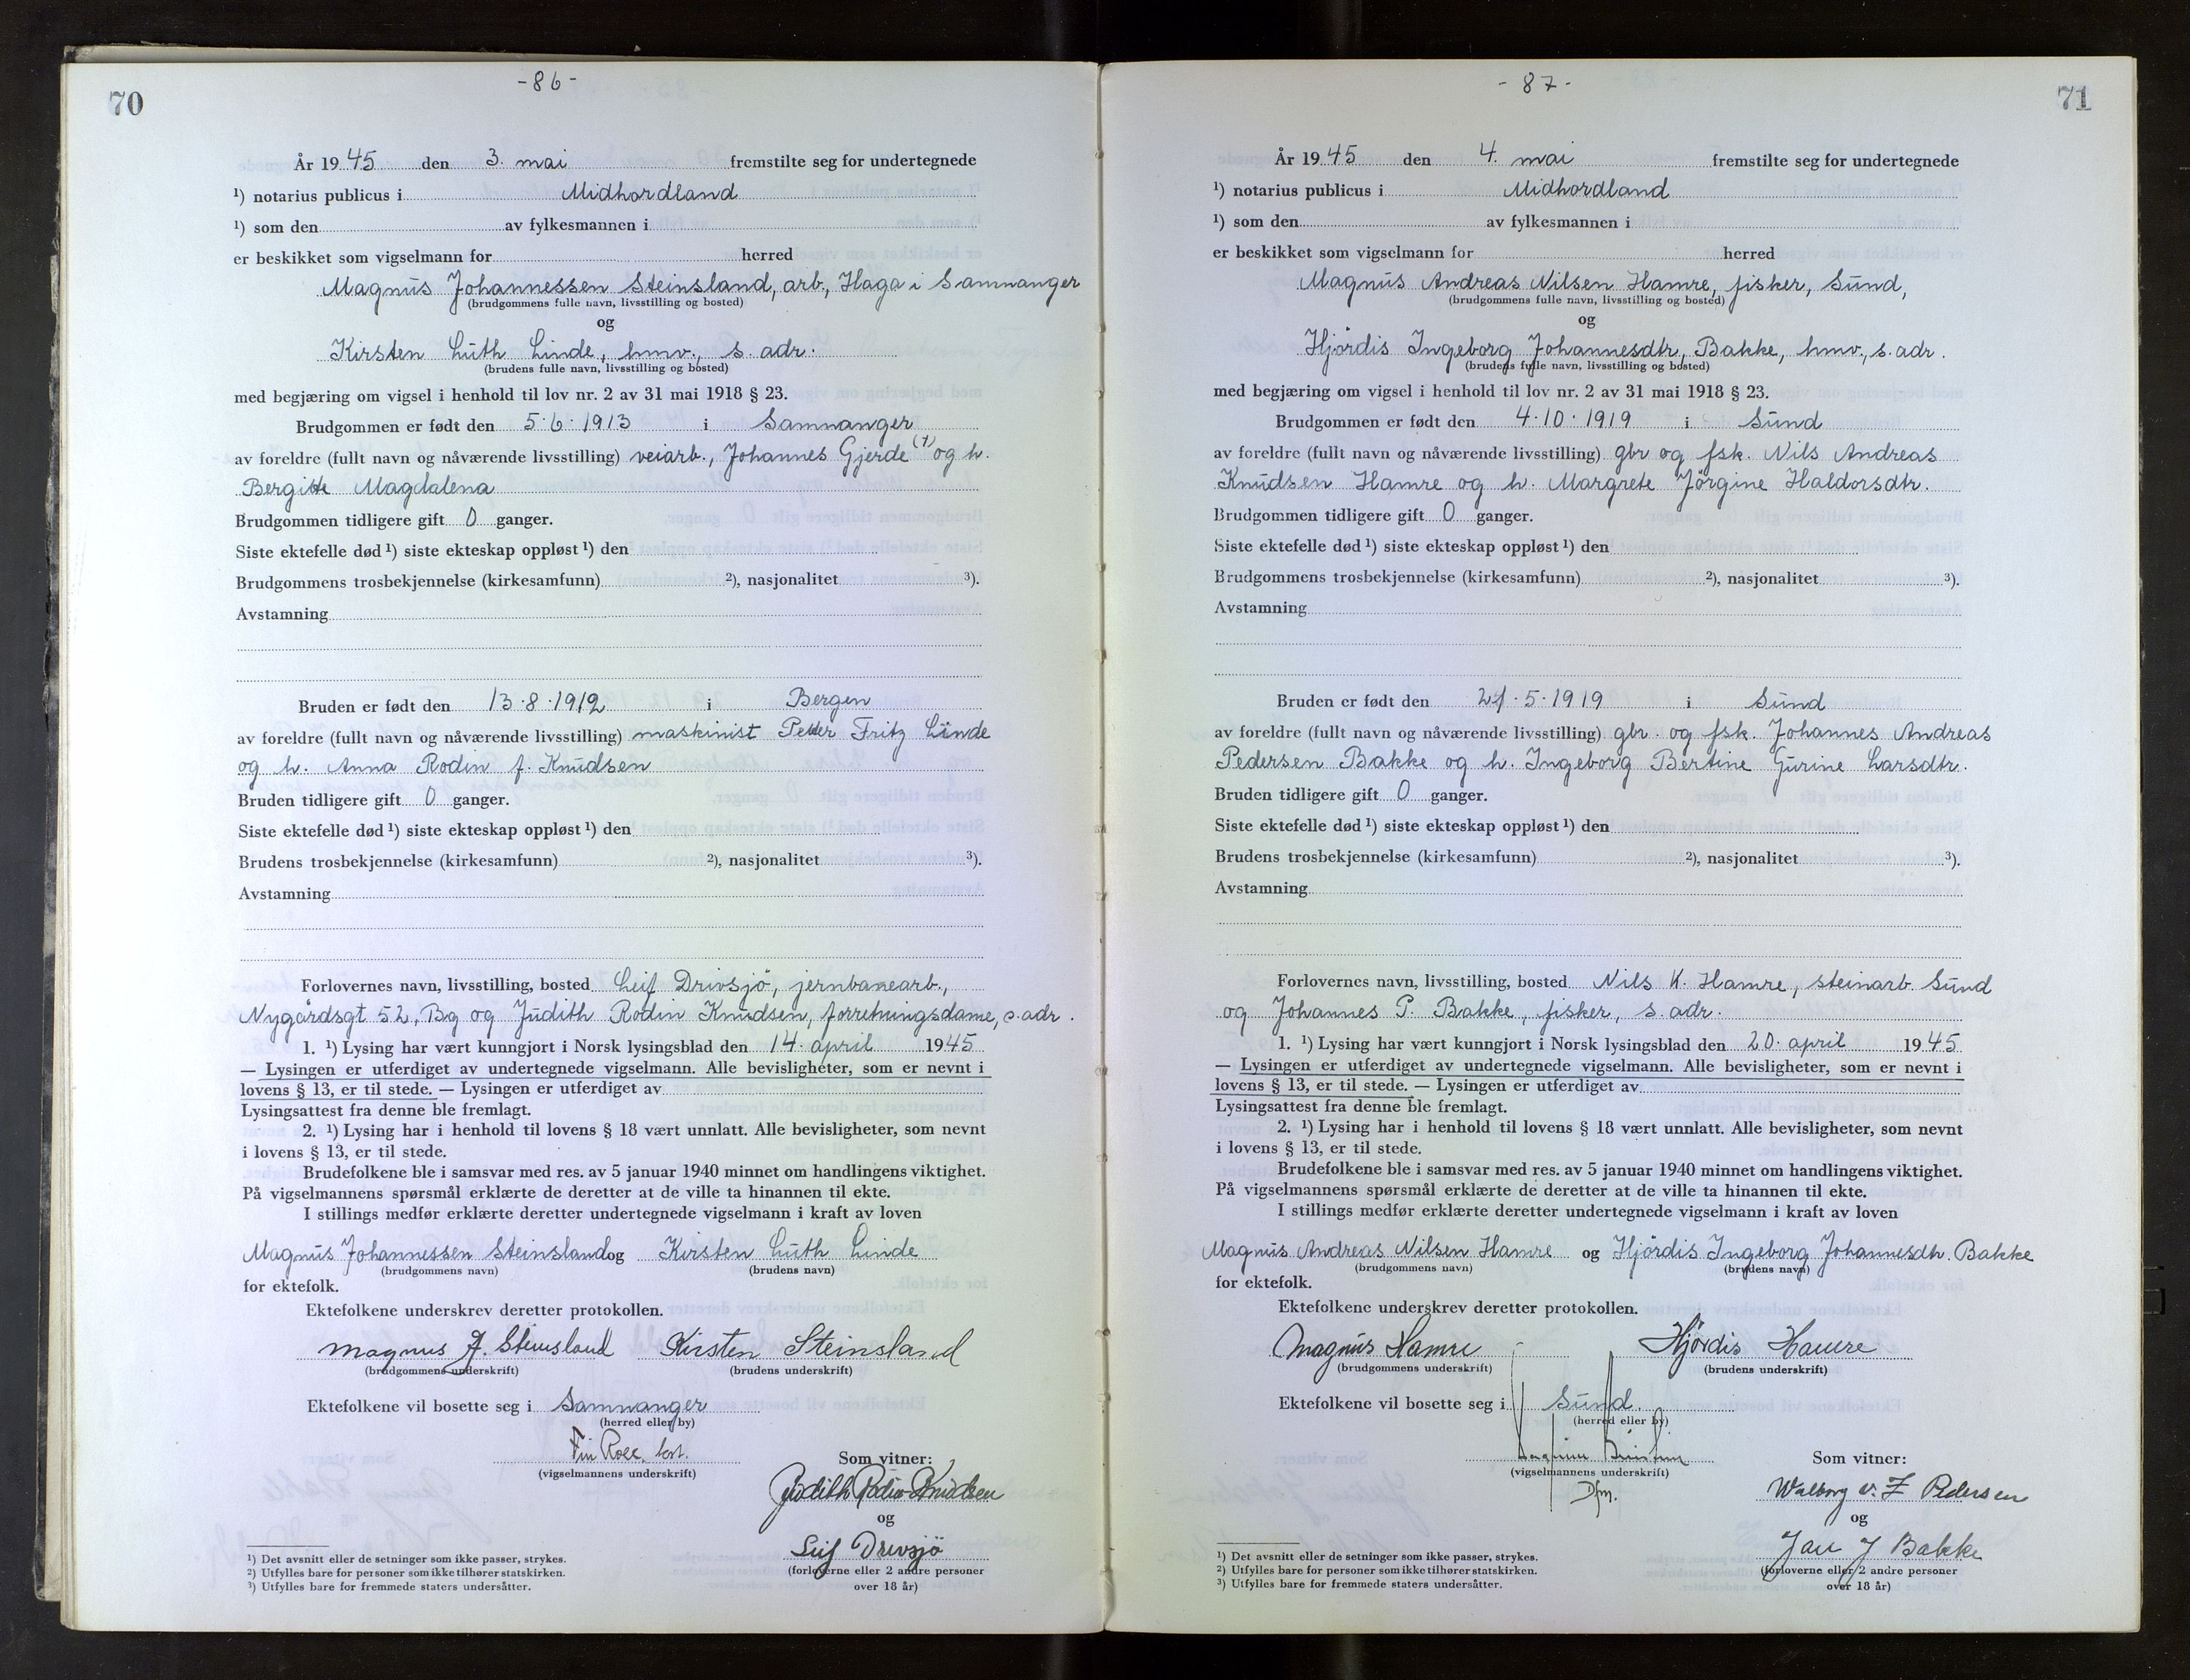 70
-86-
År 1945 den 3. mai fremstilte seg for undertegnede
¹) notarius publicus i Midhordland
¹) som den av fylkesmannen i
er beskikket som vigselmann for herred
Magnus Johannessen Steinsland, arb., Haga i Samnanger
(brudgommens fulle navn, livsstilling og bosted)
og
Kirsten Luth Linde, hmv., s. adr.
(brudens fulle navn, livsstilling og bosted)
med begjæring om vigsel i henhold til lov nr. 2 av 31 mai 1918 § 23.
Brudgommen er født den 5.6.1913 i Samnanger
av foreldre (fullt navn og nåværende livsstilling) veiarb., Johannes Gjerde (†) og h.
Bergitte Magdalena
Brudgommen tidligere gift 0 ganger.
Siste ektefelle død ¹) siste ekteskap oppløst ¹) den
Brudgommens trosbekjennelse (kirkesamfunn) ²), nasjonalitet ³).
Avstamning
Bruden er født den 13.8.1912 i Bergen
av foreldre (fullt navn og nåværende livsstilling) maskinist Petter Fritz Linde
og h. Anna Rodin f. Knudsen
Bruden tidligere gift 0 ganger.
Siste ektefelle død ¹) siste ekteskap oppløst ¹) den
Brudens trosbekjennelse (kirkesamfunn) ²), nasjonalitet ³).
Avstamning
Forlovernes navn, livsstilling, bosted Leif Drivsjö, jernbanearb.,
Nygårdsgt 52, Bg og Judith Rodin Knudsen, forretningsdame, s. adr.
1. ¹) Lysing har vært kunngjort i Norsk lysingsblad den 14. april 1945
— Lysingen er utferdiget av undertegnede vigselmann. Alle bevisligheter, som er nevnt i
lovens § 13, er til stede. — Lysingen er utferdiget av
Lysingsattest fra denne ble fremlagt.
2. ¹) Lysing har i henhold til lovens § 18 vært unnlatt. Alle bevisligheter, som nevnt
i lovens § 13, er til stede.
Brudefolkene ble i samsvar med res. av 5 januar 1940 minnet om handlingens viktighet.
På vigselmannens spørsmål erklærte de deretter at de ville ta hinannen til ekte.
I stillings medfør erklærte deretter undertegnede vigselmann i kraft av loven
Magnus Johannessen Steinsland og Kirsten Luth Linde
(brudgommens navn) (brudens navn)
for ektefolk.
Ektefolkene underskrev deretter protokollen.
Magnus J. Steinsland Kirsten Steinsland
(brudgommens underskrift) (brudens underskrift)
Ektefolkene vil bosette seg i Samnanger
(herred eller by)
(vigselmannens underskrift)
Som vitner:
Judith Rodin Knudsen
og
Leif Drivsjö
(forloverne eller 2 andre personer
over 18 år)
¹) Det avsnitt eller de setninger som ikke passer, strykes.
²) Utfylles bare for personer som ikke tilhører statskirken.
³) Utfylles bare for fremmede staters undersåtter.
71
-87-
År 1945 den 4. mai fremstilte seg for undertegnede
¹) notarius publicus i Midhordland
¹) som den av fylkesmannen i
er beskikket som vigselmann for herred
Magnus Andreas Nilsen Hamre, fisker, Sund,
(brudgommens fulle navn, livsstilling og bosted)
og
Hjördis Ingeborg Johannesdtr. Bakke, hmv., s. adr.
(brudens fulle navn, livsstilling og bosted)
med begjæring om vigsel i henhold til lov nr. 2 av 31 mai 1918 § 23.
Brudgommen er født den 4.10.1919 i Sund
av foreldre (fullt navn og nåværende livsstilling) gbr og fsk. Nils Andreas
Knudsen Hamre og h. Margrete Jörgine Haldorsdtr.
Brudgommen tidligere gift 0 ganger.
Siste ektefelle død ¹) siste ekteskap oppløst ¹) den
Brudgommens trosbekjennelse (kirkesamfunn) ²), nasjonalitet ³).
Avstamning
Bruden er født den 21.5.1919 i Sund
av foreldre (fullt navn og nåværende livsstilling) gbr. og fsk. Johannes Andreas
Pedersen Bakke og h. Ingeborg Bertine Gurine Larsdtr.
Bruden tidligere gift 0 ganger.
Siste ektefelle død ¹) siste ekteskap oppløst ¹) den
Brudens trosbekjennelse (kirkesamfunn) ²), nasjonalitet ³).
Avstamning
Forlovernes navn, livsstilling, bosted Nils K. Hamre, steinarb. Sund
og Johannes P. Bakke, fisker, s. adr.
1. ¹) Lysing har vært kunngjort i Norsk lysingsblad den 20. april 1945
— Lysingen er utferdiget av undertegnede vigselmann. Alle bevisligheter, som er nevnt i
lovens § 13, er til stede. — Lysingen er utferdiget av
Lysingsattest fra denne ble fremlagt.
2. ¹) Lysing har i henhold til lovens § 18 vært unnlatt. Alle bevisligheter, som nevnt
i lovens § 13, er til stede.
Brudefolkene ble i samsvar med res. av 5 januar 1940 minnet om handlingens viktighet.
På vigselmannens spørsmål erklærte de deretter at de ville ta hinannen til ekte.
I stillings medfør erklærte deretter undertegnede vigselmann i kraft av loven
Magnus Andreas Nilsen Hamre og Hjördis Ingeborg Johannesdtr. Bakke
(brudgommens navn) (brudens navn)
for ektefolk.
Ektefolkene underskrev deretter protokollen.
Magnus Hamre Hjördis Hamre
(brudgommens underskrift) (brudens underskrift)
Ektefolkene vil bosette seg i Sund.
(herred eller by)
(vigselmannens underskrift)
Dfm.
Som vitner:
Walborg v. Z Pedersen
og
Jan J Bakke
(forloverne eller 2 andre personer
over 18 år)
¹) Det avsnitt eller de setninger som ikke passer, strykes.
²) Utfylles bare for personer som ikke tilhører statskirken.
³) Utfylles bare for fremmede staters undersåtter.